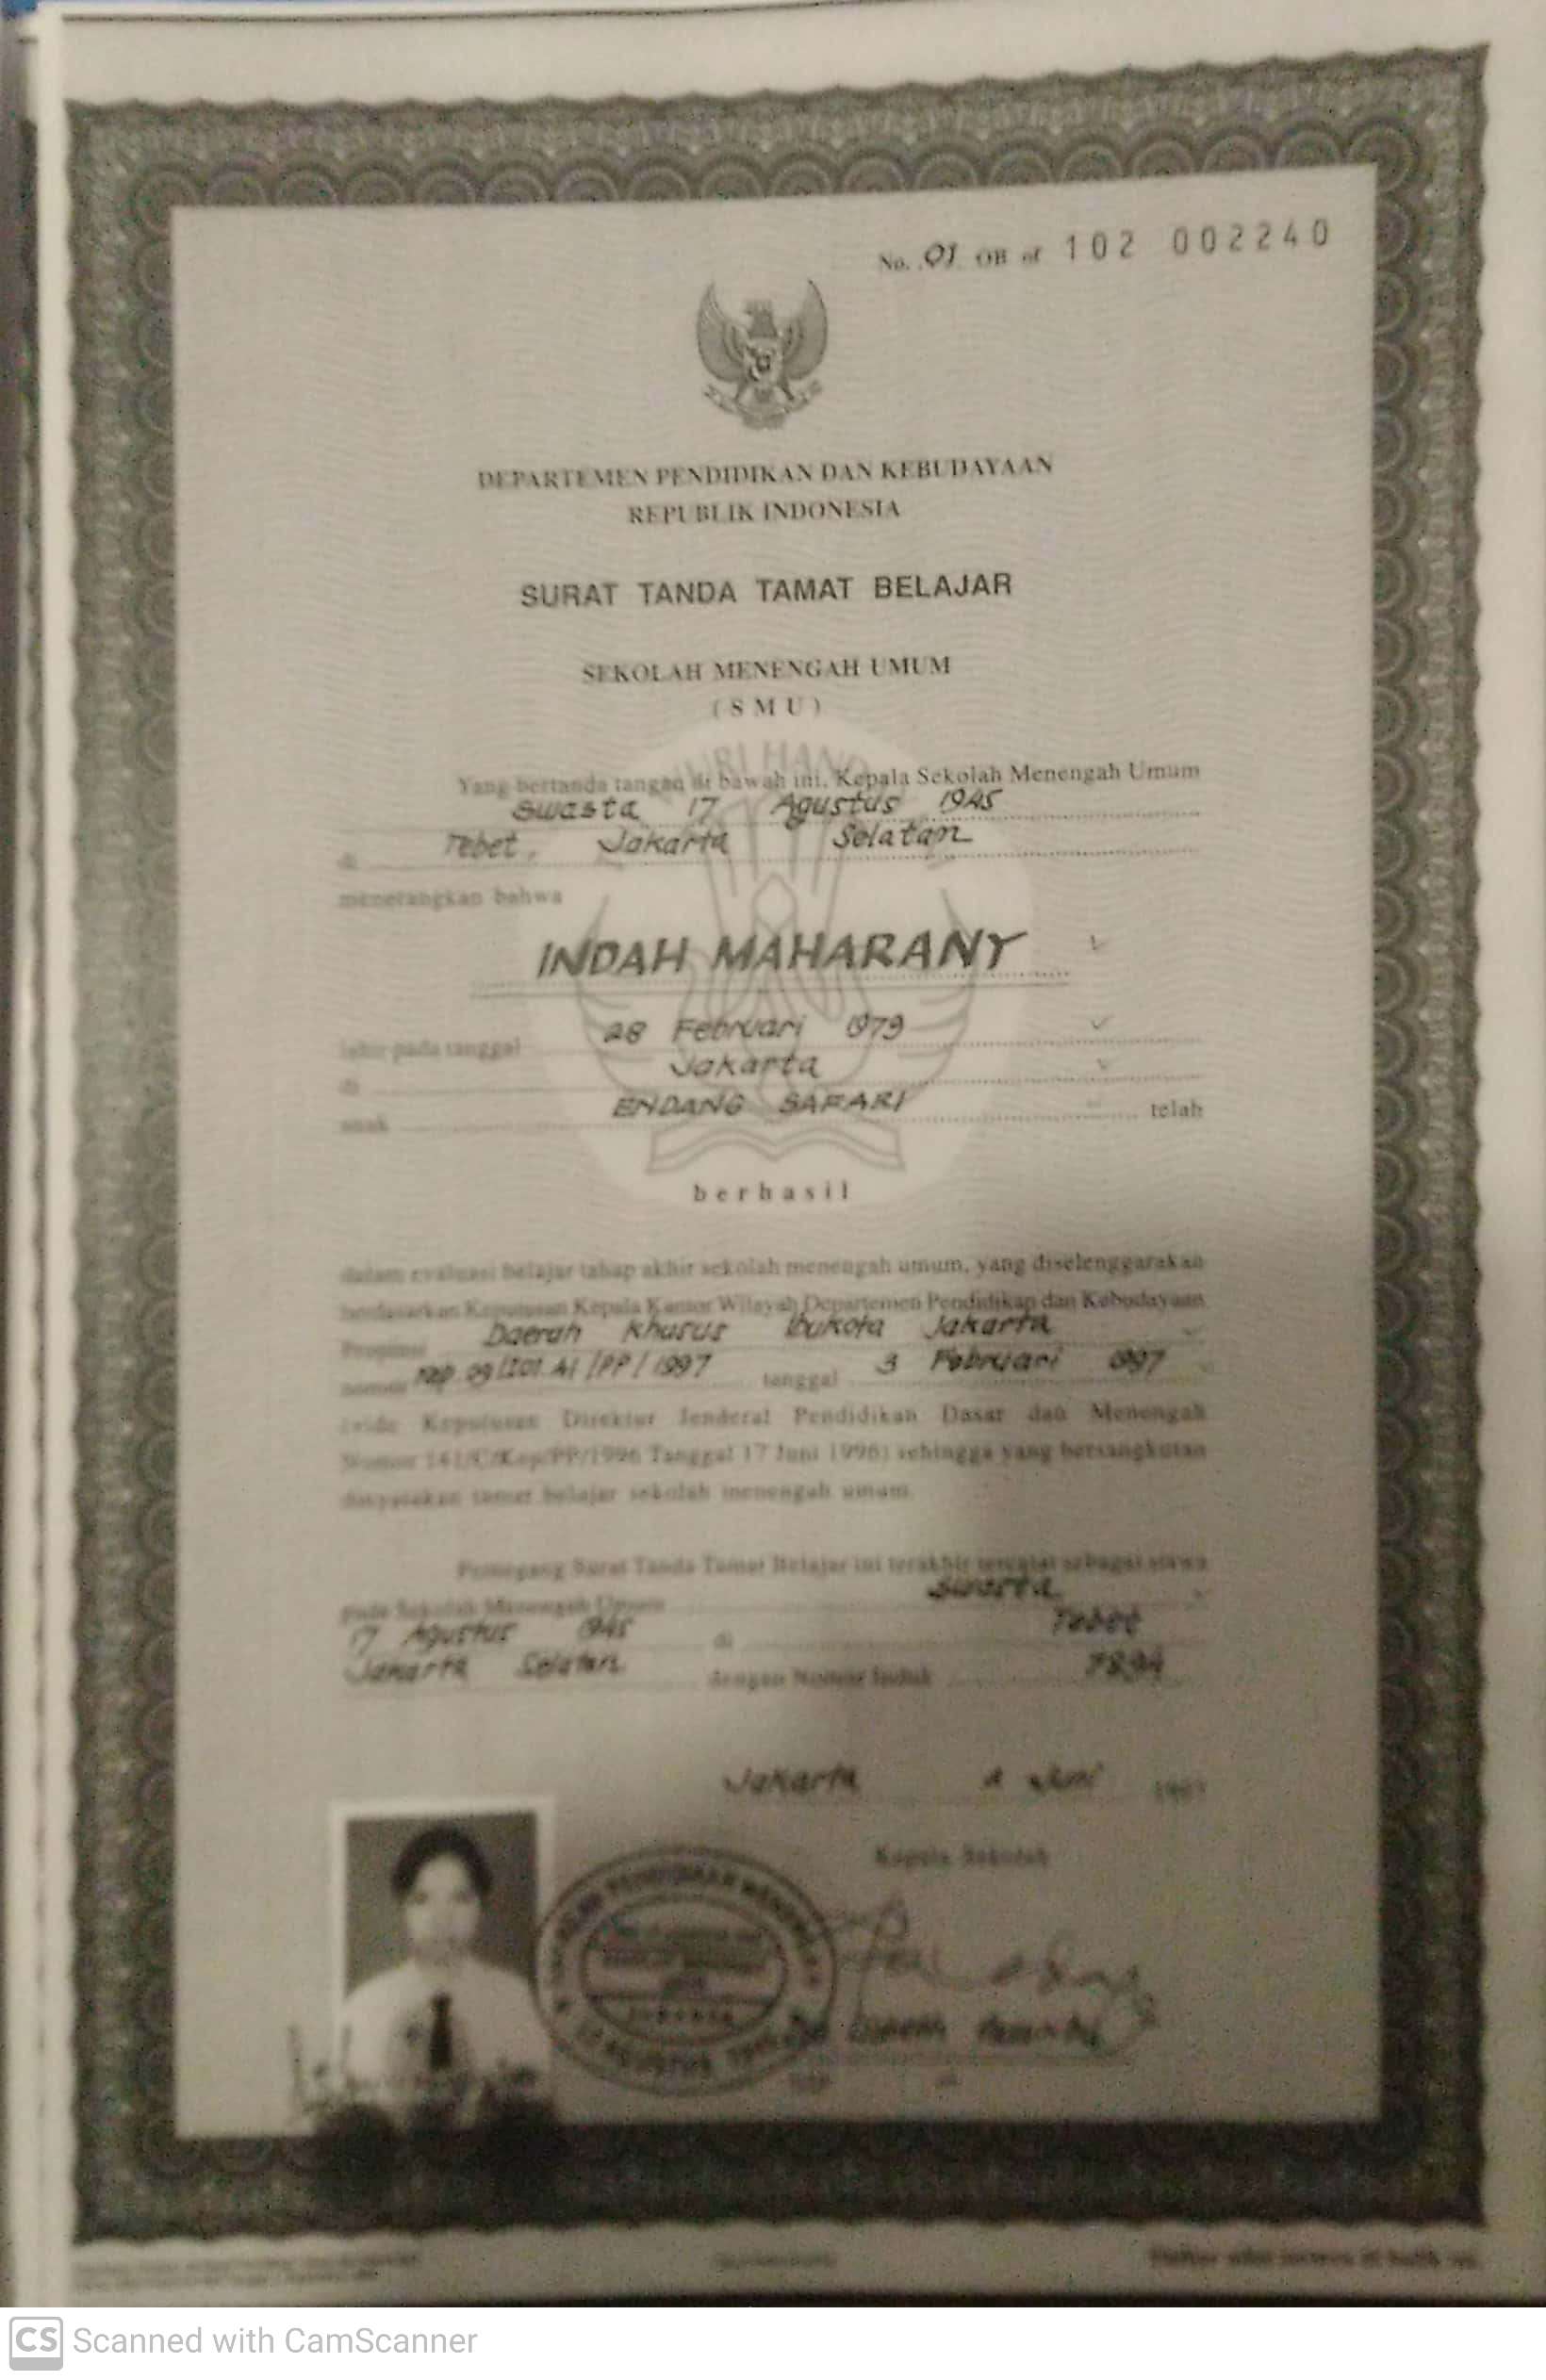 No. 01 OB of 102 002240
DEPARTEMEN PENDIDIKAN DAN KEBUDAYAAN
REPUBLIK INDONESIA
SURAT TANDA TAMAT BELAJAR
SEKOLAH MENENGAH UMUM
( S M U )
Yang bertanda tangan di bawah ini, Kepala Sekolah Menengah Umum
Swasta 17 Agustus 1945
di Tebet, Jakarta Selatan
menerangkan bahwa
INDAH MAHARANY
lahir pada tanggal 28 Februari 1979
di Jakarta
anak ENDANG SAFARI telah
berhasil
dalam evaluasi belajar tahap akhir sekolah menengah umum, yang diselenggarakan
berdasarkan Keputusan Kepala Kantor Wilayah Departemen Pendidikan dan Kebudayaan
Propinsi Daerah Khusus Ibukota Jakarta
nomor /PP/1997 tanggal 3 Februari 1997
(vide Keputusan Direktur Jenderal Pendidikan Dasar dan Menengah
Nomor 141/C/Kep/PP/1996 Tanggal 17 Juni 1996) sehingga yang bersangkutan
dinyatakan tamat belajar sekolah menengah umum.
Pemegang Surat Tanda Tamat Belajar ini terakhir tercatat sebagai siswa
pada Sekolah Menengah Umum Swasta
17 Agustus 1945 di Tebet
Jakarta Selatan dengan Nomor Induk 7894
Jakarta 4 Juni 1997
Kepala Sekolah
CS Scanned with CamScanner